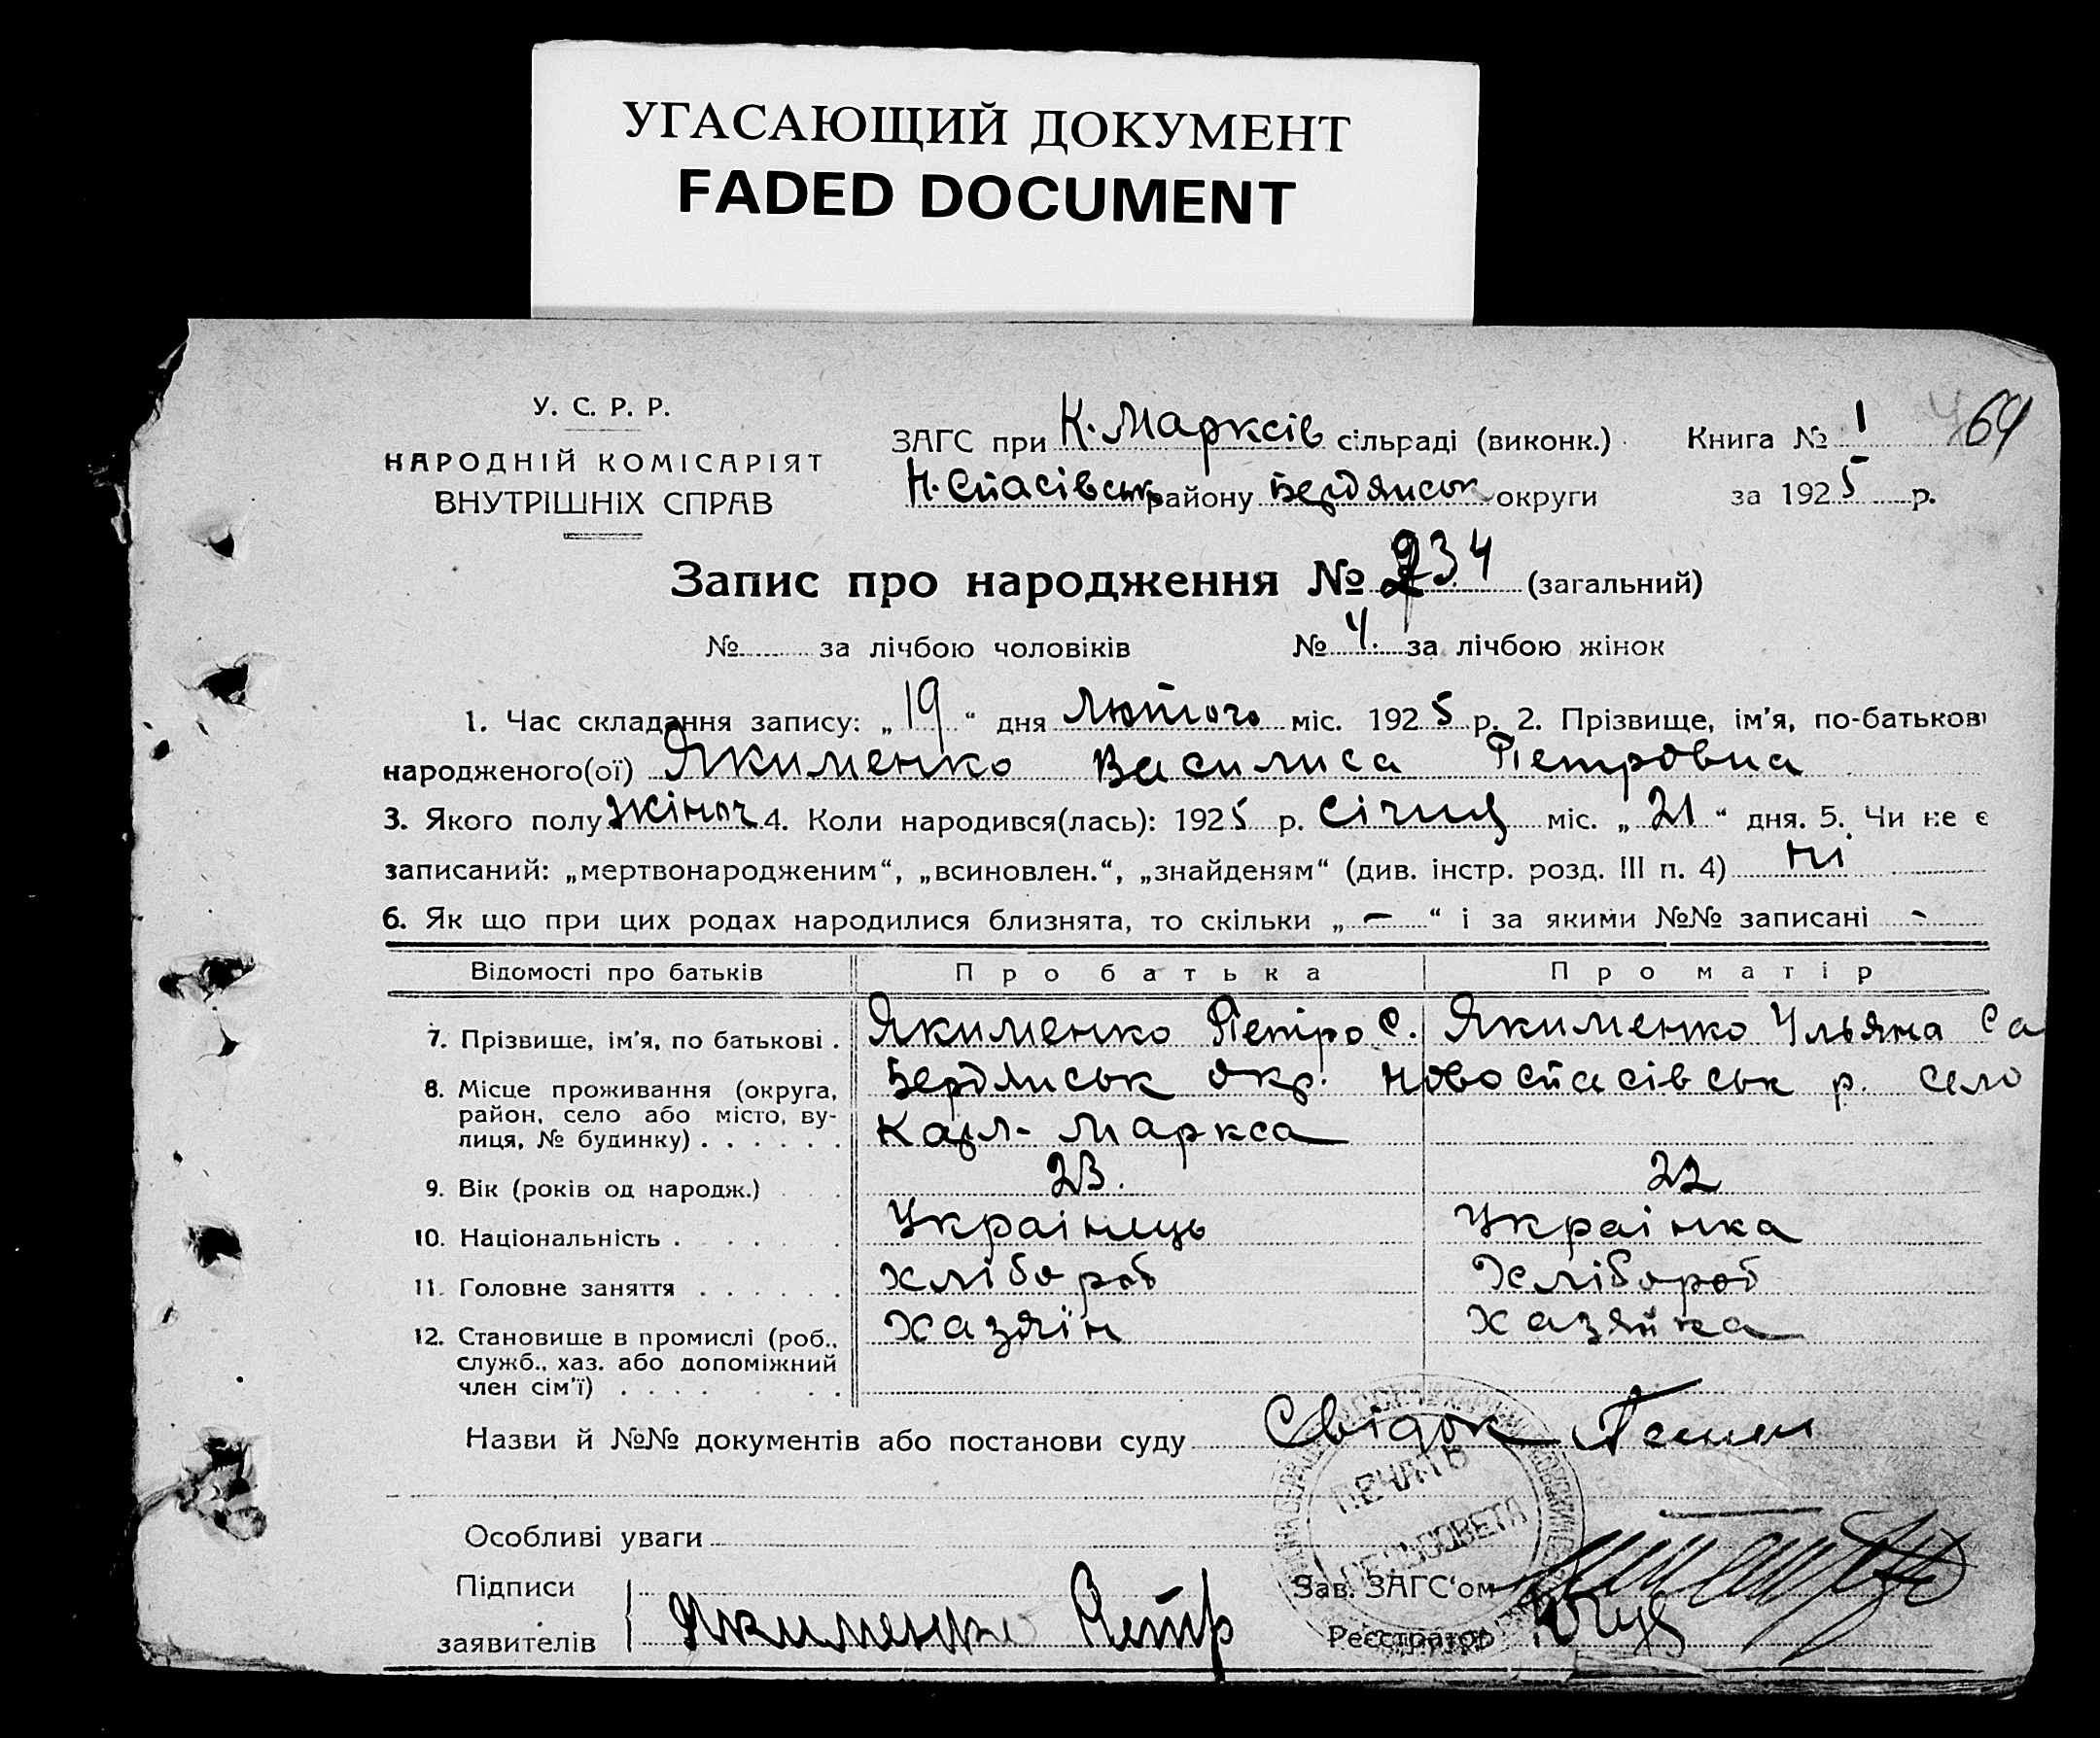 УГАСАЮЩИЙ ДОКУМЕНТ
FADED DOCUMENT
У. С. Р. Р.
НАРОДНІЙ КОМІСАРІЯТ
ВНУТРІШНІХ СПРАВ
ЗАГС при К. Марксів сільраді (виконк.)
Н. Спасівськ району Бердянськ округи
Книга № 1
69
за 1925 р.
Запис про народження № 234 (загальний)
№ за лічбою чоловіків № 4. за лічбою жінок
1. Час складання запису: „19“ дня Лютого міс. 1925 р. 2. Прізвище, ім'я, по-батькові
народженого(ої) Якименко Василиса Петровна
3. Якого полу жіноч 4. Коли народився(лась): 1925 р. Січня міс. „21“ дня. 5. Чи не є
записаний: „мертвонародженим“, „всиновлен.“, „знайденям“ (див. інстр. розд. III п. 4) Ні
6. Як що при цих родах народилися близнята, то скільки „—“ і за якими №№ записані -
Відомості про батьків Про батька Про матір
7. Прізвище, ім'я, по батькові . Якименко Петро С. Якименко Ульяна Са
8. Місце проживання (округа, район, село або місто, вулиця, № будинку) . . . . . . Бердянськ окр. Новоспасівськ р. село
Карл-Маркса
9. Вік (років од народж.) 23. 22
10. Національність . Українець Українка
11. Головне заняття . . . . . . Хлібороб Хлібороб
12. Становище в промислі (роб., служб., хаз. або допоміжний член сім'ї) . . . . Хазяїн Хазяйка
Назви й №№ документів або постанови суду Свідок
ПЕЧАТЬ
СЕЛЬСОВЕТА
Особливі уваги
Підписи
заявителів Якименко Петр
Зав. ЗАГС'ом
Реєстратор